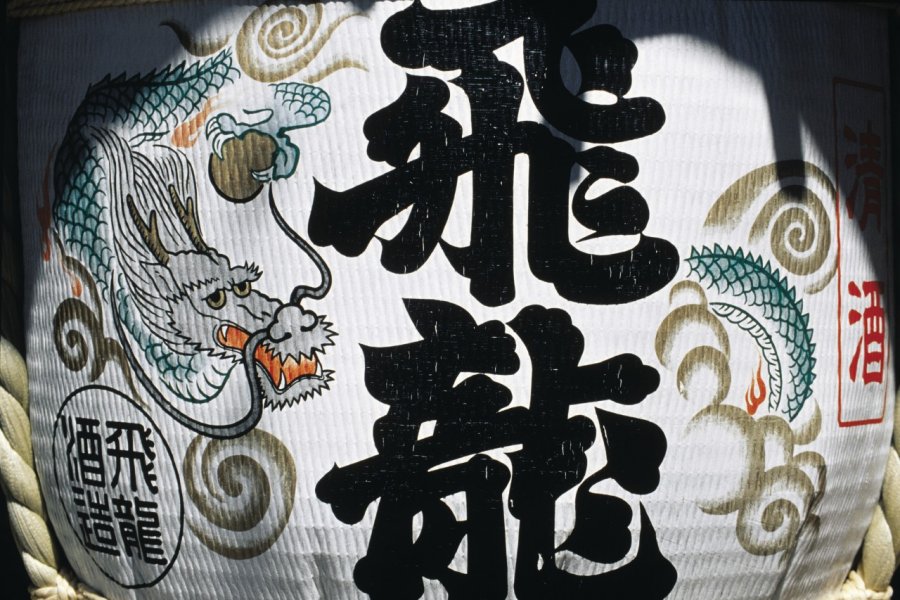 飛龍
清酒
飛龍
酒造